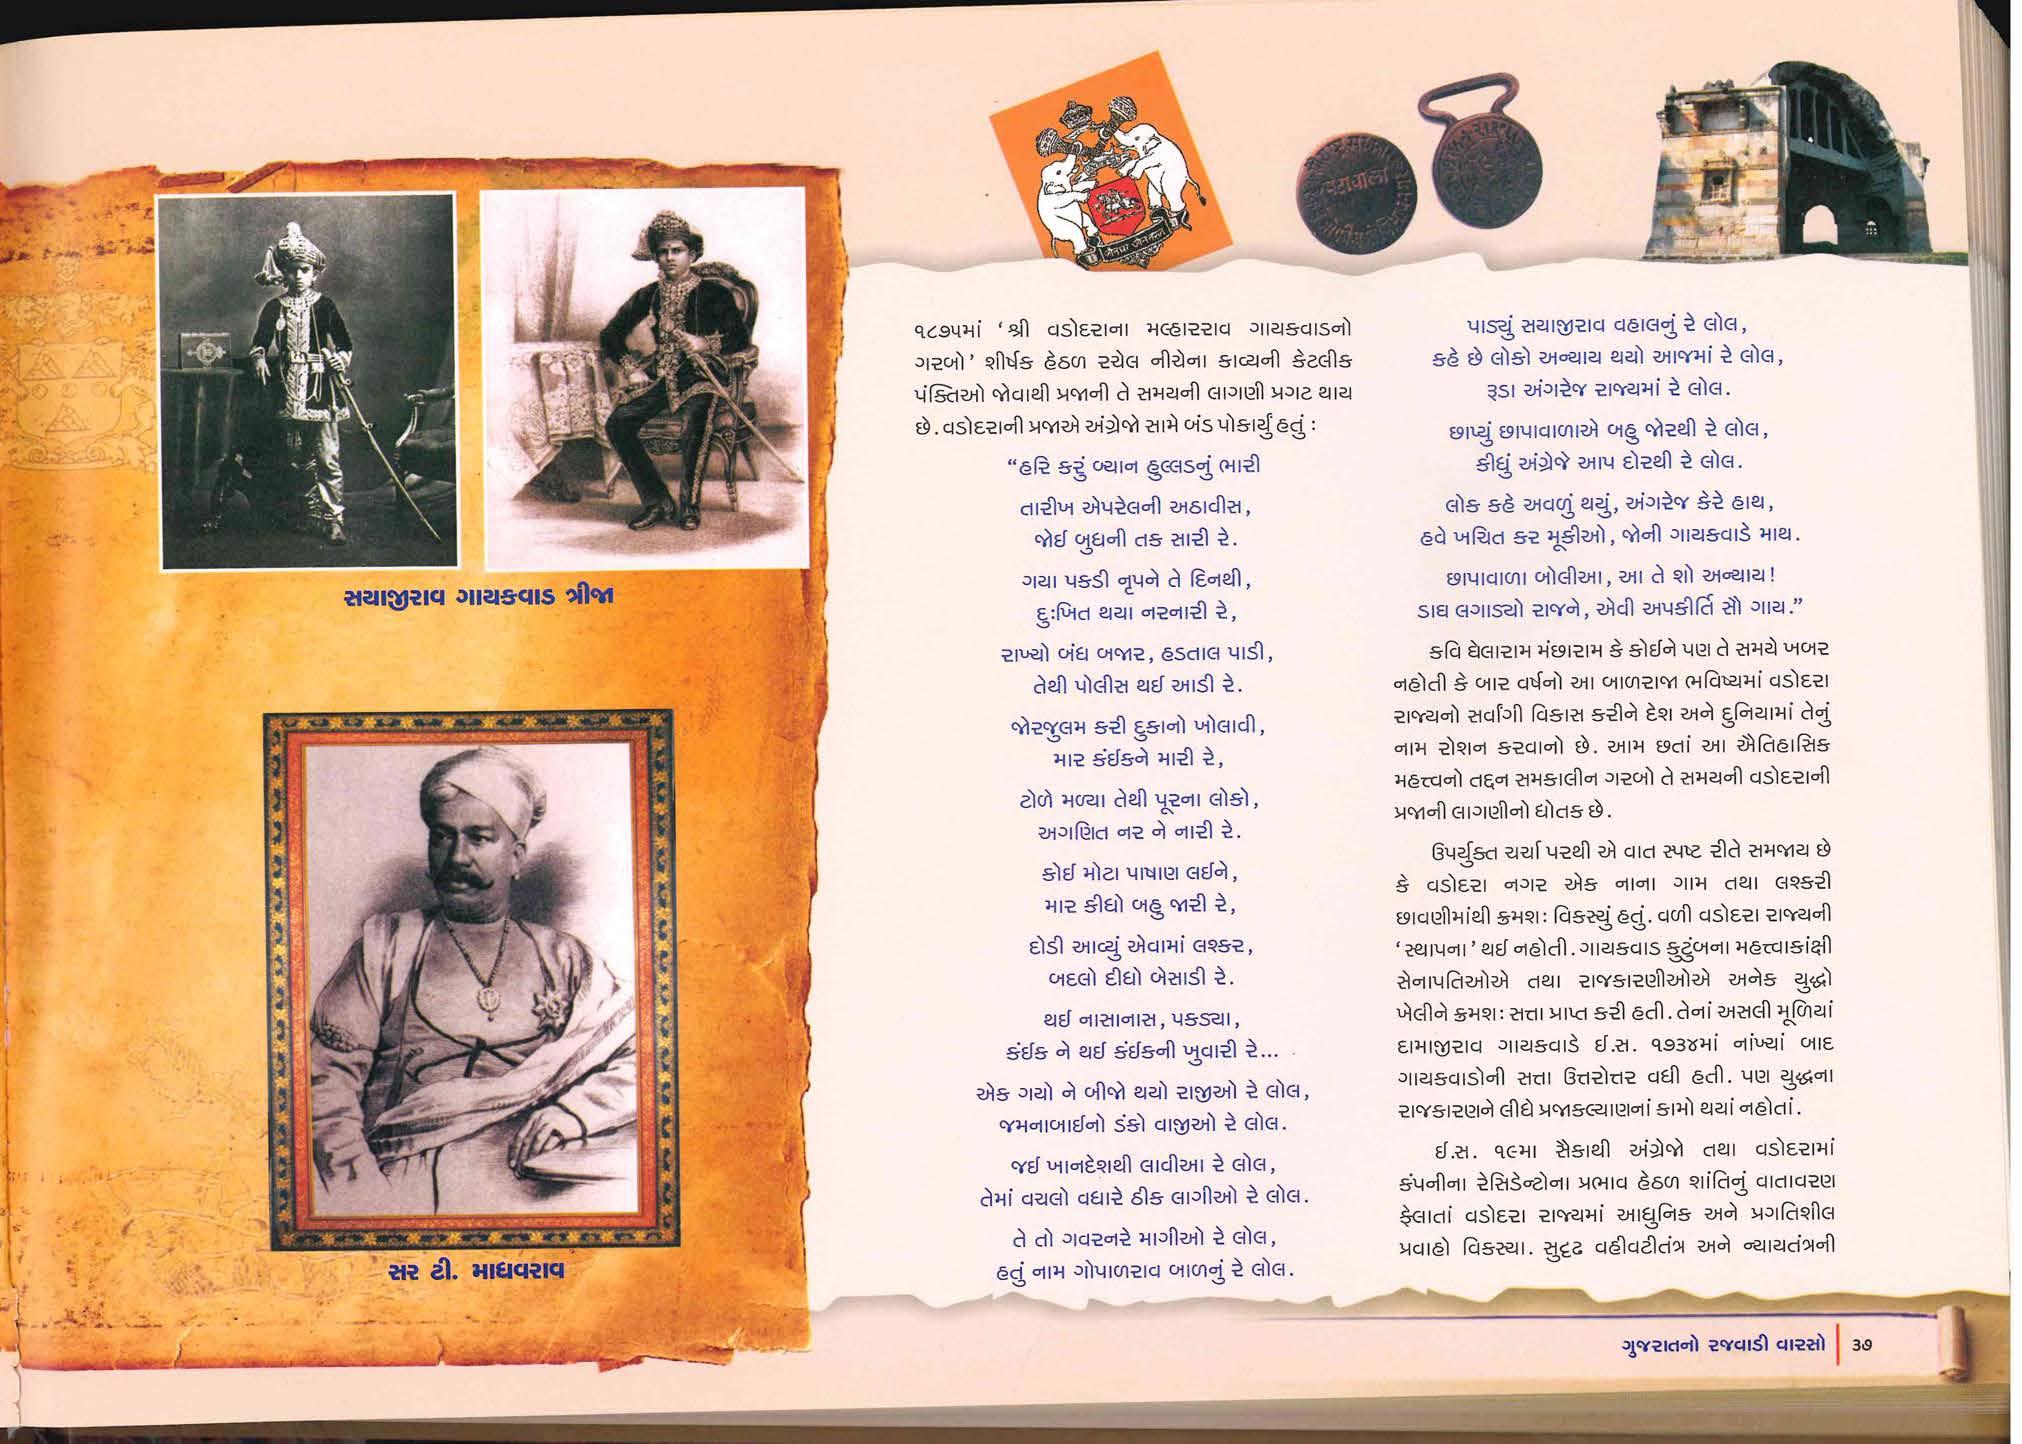 સયાજીરાવ ગાયકવાડ ત્રીજા
સર ટી. માધવરાવ
૧૮૭૫માં ‘શ્રી વડોદરાના મલ્હારરાવ ગાયકવાડનો
ગરબો’ શીર્ષક હેઠળ રચેલ નીચેના કાવ્યની કેટલીક
પંક્તિઓ જોવાથી પ્રજાની તે સમયની લાગણી પ્રગટ થાય
છે. વડોદરાની પ્રજાએ અંગ્રેજો સામે બંડ પોકાર્યું હતું :
“હરિ કરું બ્યાન હુલ્લડનું ભારી
તારીખ એપરેલની અઠાવીસ,
જોઈ બુધની તક સારી રે.
ગયા પકડી નૃપને તે દિનથી,
દુઃખિત થયા નરનારી રે,
રાખ્યો બંધ બજાર, હડતાલ પાડી,
તેથી પોલીસ થઈ આડી રે.
જોરજુલમ કરી દુકાનો ખોલાવી,
માર કંઈકને મારી રે,
ટોળે મળ્યા તેથી પૂરના લોકો,
અગણિત નર ને નારી રે.
કોઈ મોટા પાષાણ લઈને,
માર કીધો બહુ જારી રે,
દોડી આવ્યું એવામાં લશ્કર,
બદલો દીધો બેસાડી રે.
થઈ નાસાનાસ, પકડ્યા,
કંઈક ને થઈ કંઈકની ખુવારી રે...
એક ગયો ને બીજો થયો રાજીઓ રે લોલ,
જમનાબાઈનો ડંકો વાજીઓ રે લોલ.
જઈ ખાનદેશથી લાવીઆ રે લોલ,
તેમાં વચલો વધારે ઠીક લાગીઓ રે લોલ.
તે તો ગવરનરે માગીઓ રે લોલ,
હતું નામ ગોપાળરાવ બાળનું રે લોલ.
પાડ્યું સયાજીરાવ વહાલનું રે લોલ,
કહે છે લોકો અન્યાય થયો આજમાં રે લોલ,
રૂડા અંગરેજ રાજ્યમાં રે લોલ.
છાપ્યું છાપાવાળાએ બહુ જોરથી રે લોલ,
કીધું અંગ્રેજે આપ દોરથી રે લોલ.
લોક કહે અવળું થયું, અંગરેજ કેરે હાથ,
હવે ખચિત કર મૂકીઓ, જોની ગાયકવાડે માથ.
છાપાવાળા બોલીઆ, આ તે શો અન્યાય!
ડાઘ લગાડ્યો રાજને, એવી અપકીર્તિ સૌ ગાય.”
કવિ ઘેલારામ મંછારામ કે કોઈને પણ તે સમયે ખબર
નહોતી કે બાર વર્ષનો આ બાળરાજા ભવિષ્યમાં વડોદરા
રાજ્યનો સર્વાંગી વિકાસ કરીને દેશ અને દુનિયામાં તેનું
નામ રોશન કરવાનો છે. આમ છતાં આ ઐતિહાસિક
મહત્ત્વનો તદ્દન સમકાલીન ગરબો તે સમયની વડોદરાની
પ્રજાની લાગણીનો ધોતક છે.
ઉપર્યુક્ત ચર્ચા પરથી એ વાત સ્પષ્ટ રીતે સમજાય છે
કે વડોદરા નગર એક નાના ગામ તથા લશ્કરી
છાવણીમાંથી ક્રમશઃ વિકસ્યું હતું. વળી વડોદરા રાજ્યની
‘સ્થાપના’ થઈ નહોતી. ગાયકવાડ કુટુંબના મહત્ત્વાકાંક્ષી
સેનાપતિઓએ તથા રાજકારણીઓએ અનેક યુદ્ધો
ખેલીને ક્રમશઃ સત્તા પ્રાપ્ત કરી હતી. તેનાં અસલી મૂળિયાં
દામાજીરાવ ગાયકવાડે ઈ.સ. ૧૭૩૪માં નાંખ્યાં બાદ
ગાયકવાડોની સત્તા ઉત્તરોત્તર વધી હતી. પણ યુદ્ધના
રાજકારણને લીધે પ્રજાકલ્યાણનાં કામો થયાં નહોતાં.
ઈ.સ. ૧૯મા સૈકાથી અંગ્રેજો તથા વડોદરામાં
કંપનીના રેસિડેન્ટોના પ્રભાવ હેઠળ શાંતિનું વાતાવરણ
ફેલાતાં વડોદરા રાજ્યમાં આધુનિક અને પ્રગતિશીલ
પ્રવાહો વિકસ્યા. સુદૃઢ વહીવટીતંત્ર અને ન્યાયતંત્રની
ગુજરાતનો રજવાડી વારસો | ૩૭